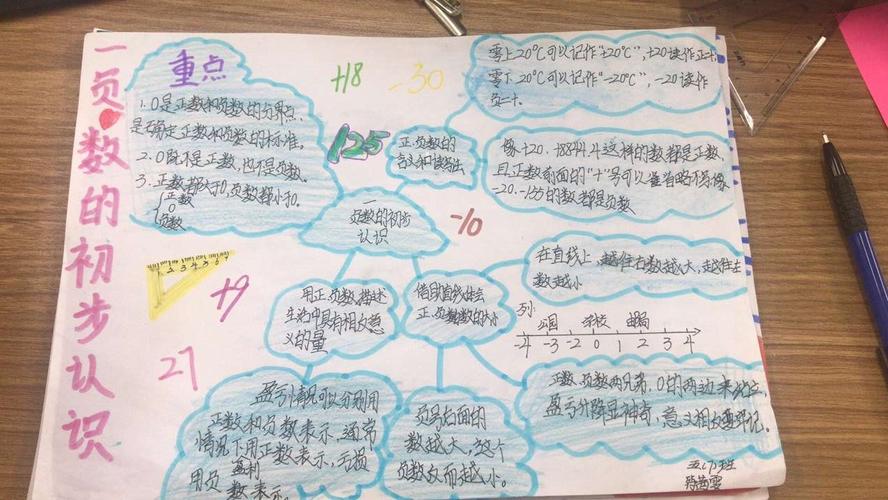 一负数的初步认识
重点
1.0是正数和负数的分界点,
是确定正数和负数的标准。
2.0既不是正数,也不是负数。
3.正数都大于0,负数都小于0。
正数
0
负数
+18
-30
125
-10
+9
27
零上20℃可以记作"+20℃",+20读作正二十
零下20℃可以记作"-20℃",-20读作
负二十。
正、负数的
含义和读写法
像+20、+8844.4这样的数都是正数,
且正数前面的"+"号可以省略不写,像
-20、-155的数都是负数
一
负数的初步
认识
在直线上,越往右数越大,越往左
数越小
用正、负数描述
生活中具有相反意
义的量
借助直线体会
正、负数的大小
列
公园 学校 邮局
-4 -3 -2 0 1 2 3 4
盈亏情况可以分别用
正数和负数表示,通常
情况下用正数表示,亏损
盈利
用负数表示。
负号后面的
数越大,这个
负数反而越小。
正数、负数两兄弟,0的两边来站立,
盈亏升降显神奇,意义相反要牢记。
五(1)班